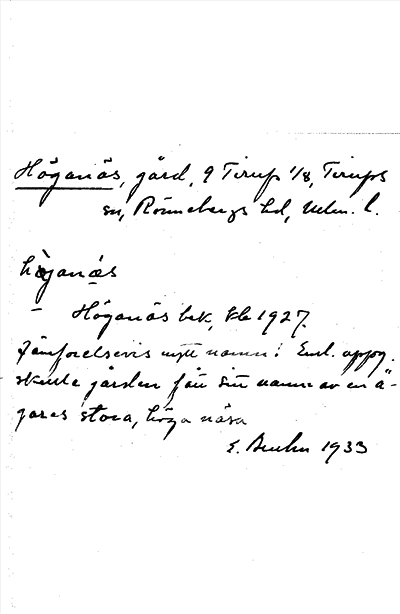 Höganäs, gård, 9 Tirup 1/8, Tirups
sn, Rönnebergs hd, Malm. l.
høganæs
— Höganäs bek, kb 1927.
Jämförelsevis nytt namn! Enl. uppg.
skulle gården fått sitt namn av en ä-
gares stora, höga näsa
E. Bruhn 1933